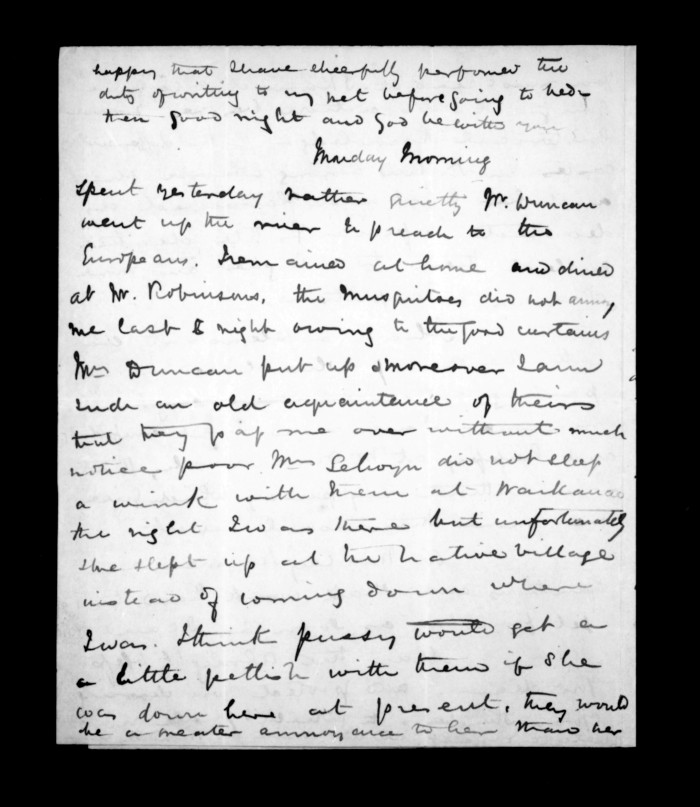 happy that I have cheerfully performed the
duty of writing to my pet before going to bed
then good night and God be with you
Monday Morning
Spent yesterday rather quietly Mr. Duncan
went up the river to preach to the
Europeans. I remained at home and dined
at Mr. Robinsons, the Musquitoes did not annoy
me last night owing to the good curtains
Mrs Duncan put up & moreover I am
such an old aquaintance of theirs
that they pass me over without much
notice poor Mrs Selwyn did not sleep
a wink with them at Waikanae
the night I was there but unfortunately
she slept up at the Native village
instead of coming down where
I was. I think pussy would get a
a little pettish with them if she
was down here at present, they would
be a greater annoyance to her than her